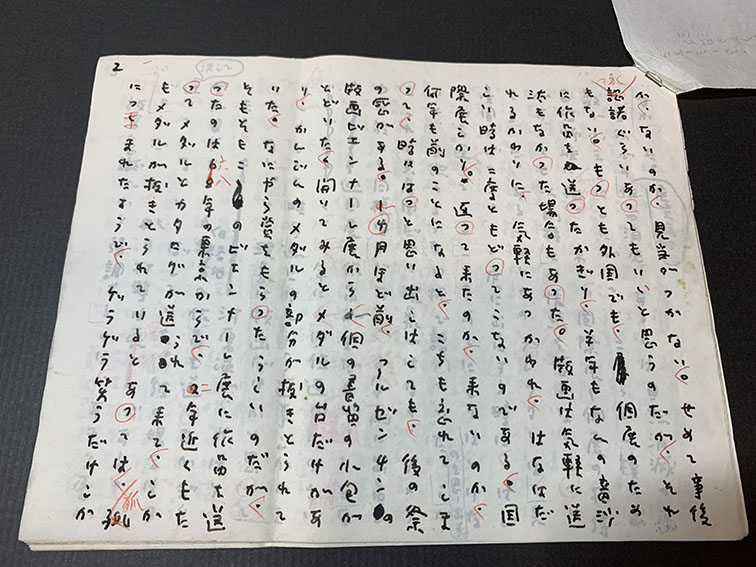 2
決して
かないのか、見当がつかない。せめて事後
認諾ぐらいあってもいいと思うのだが、それ
もない。もっとも外国でも、個展のため
に作品を送ったかぎり半年もなんの音沙
汰もなかった場合もあった。版画は気軽に送
れるかわりに、気軽にあつかわれ、はなはだ
しい時は二度ともどってこないのである。国
際展しかり。返って来たのか、来ないのか、
何年も前のことになると、こちらも忘れてしま
って、時にはっと思い出しはしても、後の祭
の感がある。一ヶ月ほど前、
版画ビエンナーレ展から一個の書留の小包が
とどいた。開いてみるとメダルの台だけがあ
り、かんじんのメダルの部分が抜きとられて
いた。なにやら賞をもらったらしいのだが、
そもそも このビエンナーレ展に作品を送
ったのは六八年の暮だからで、二年近くもた
ってメダルとカタログが送られて来て、しか
もメダルが抜きとられているとあっては、狐
につままれたようで、ゲラゲラ笑うだけしか